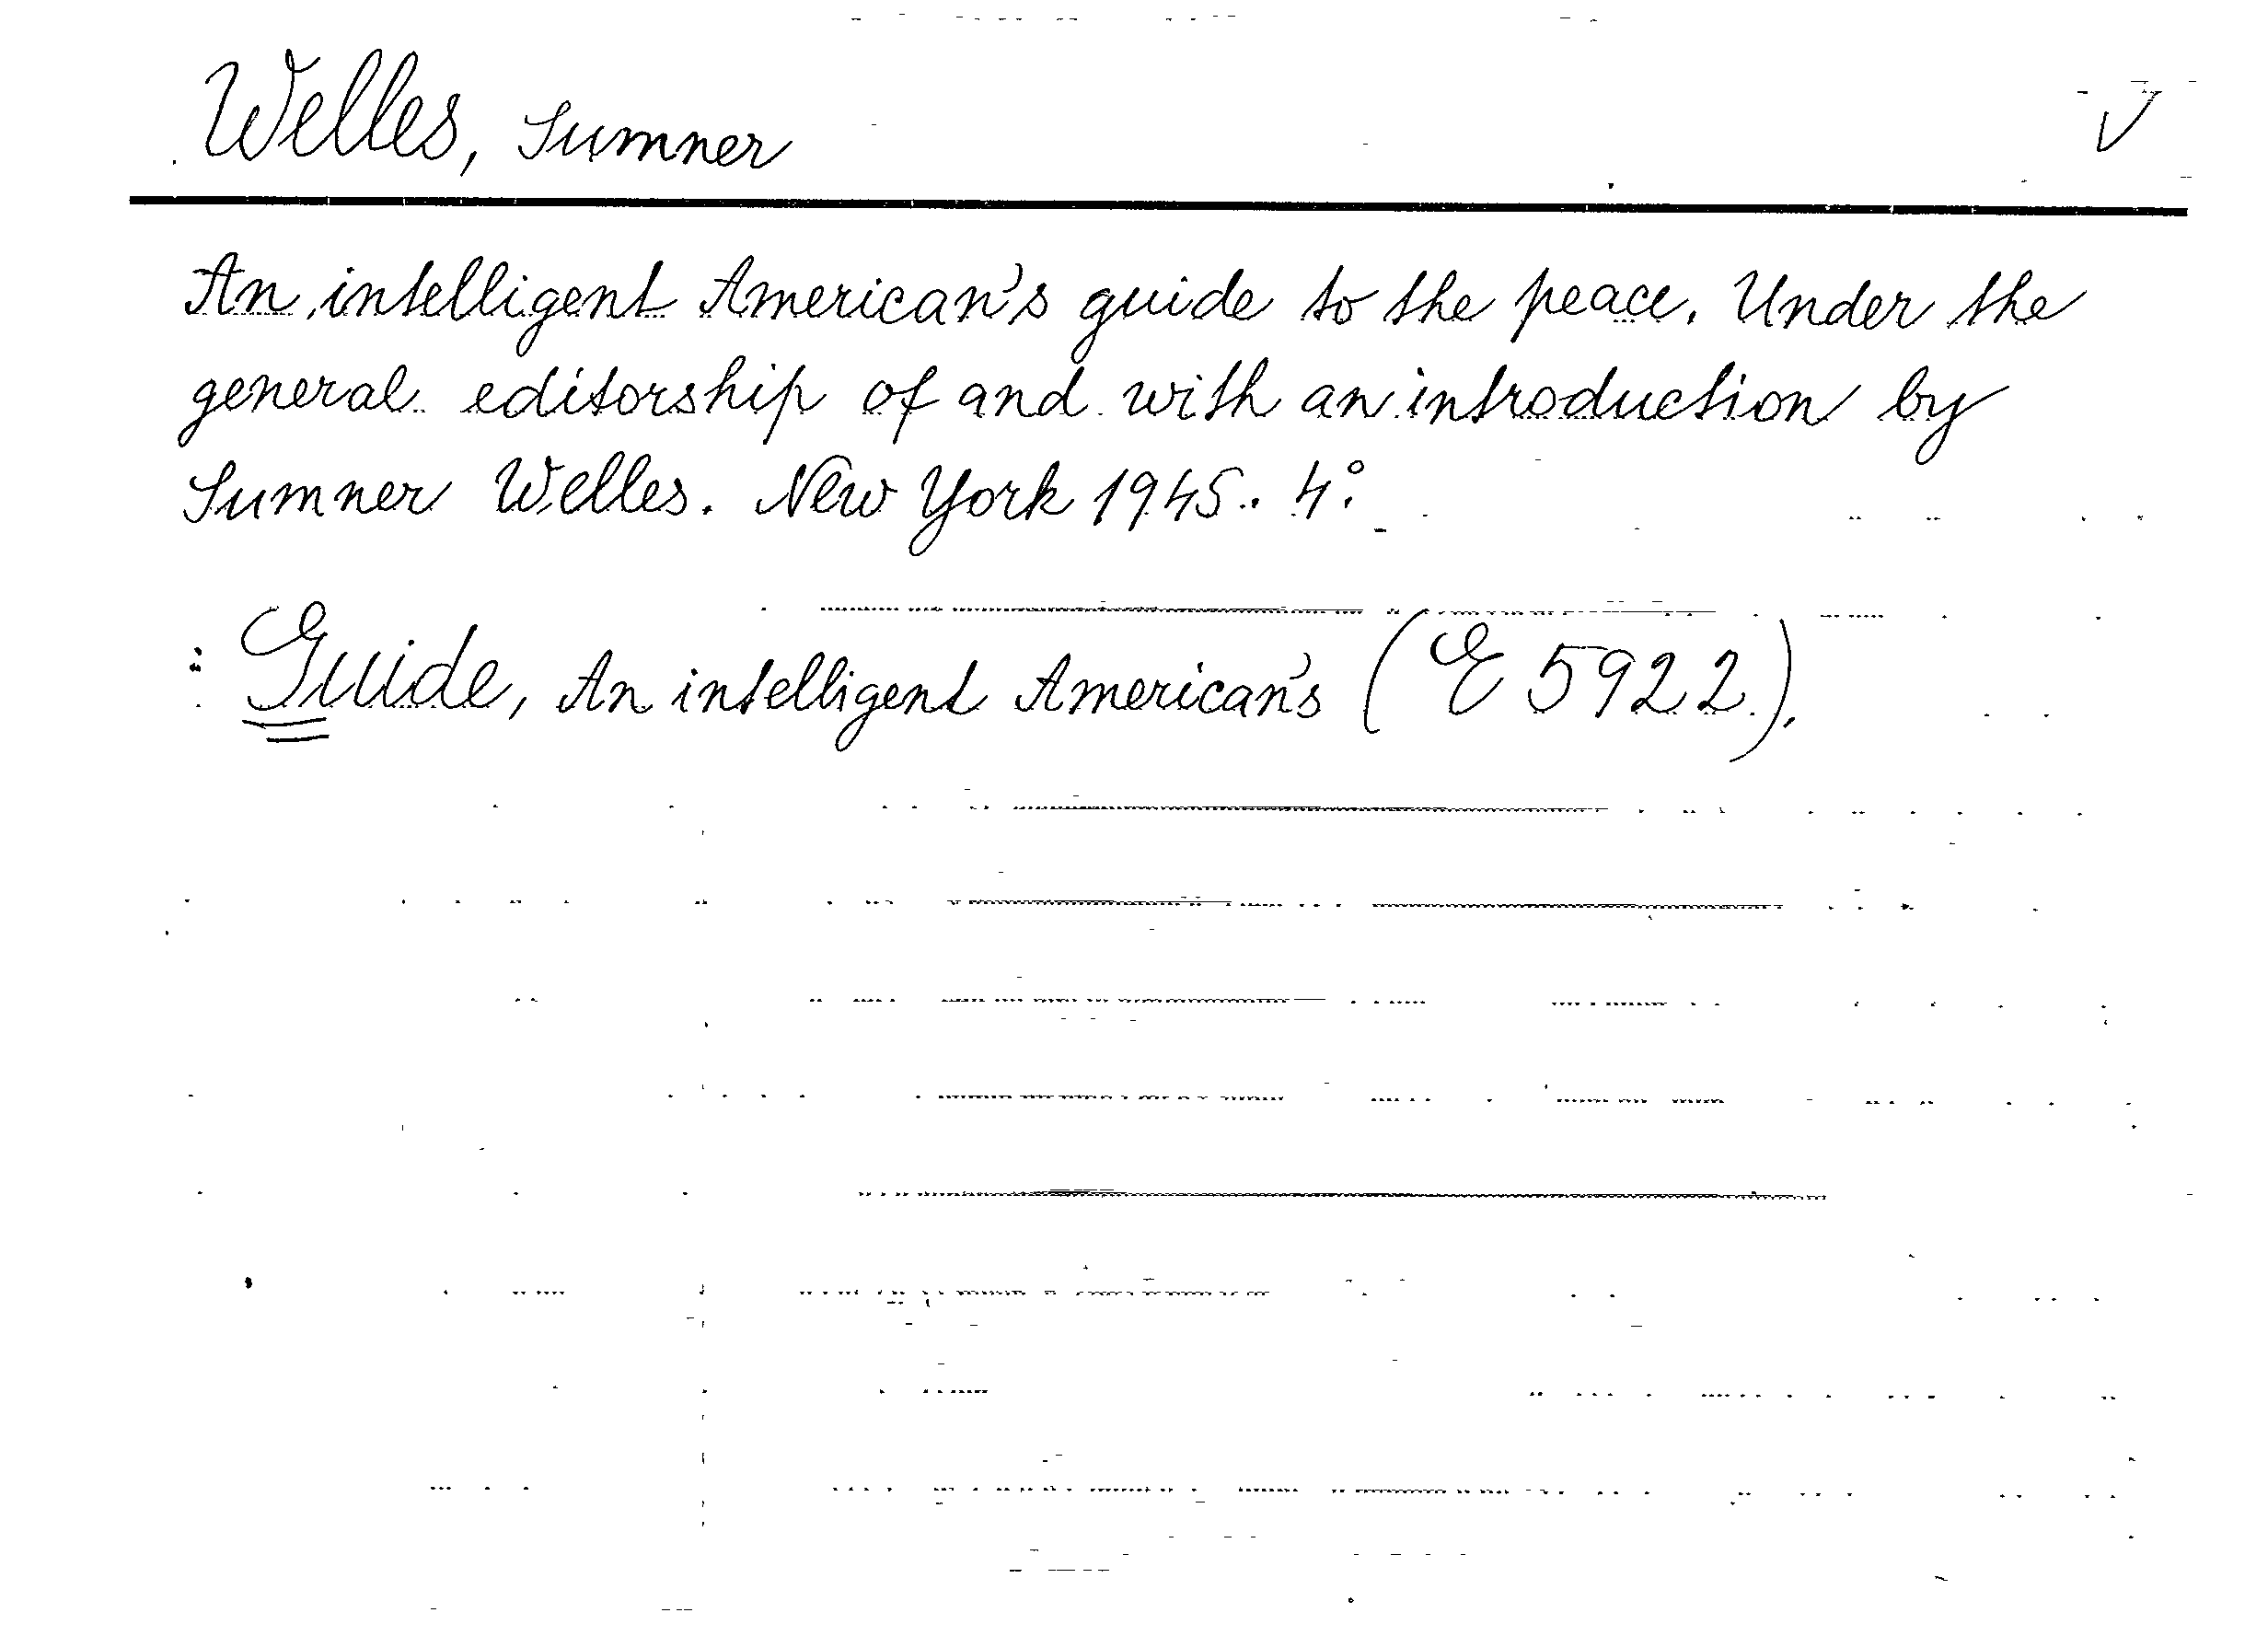 Welles, Sumner V
An intelligent American's guide to the peace. Under the
general editorship of and with an introduction by
Sumner Welles. New York 1945. 4°.
: Guide, An intelligent American's (E 5922).